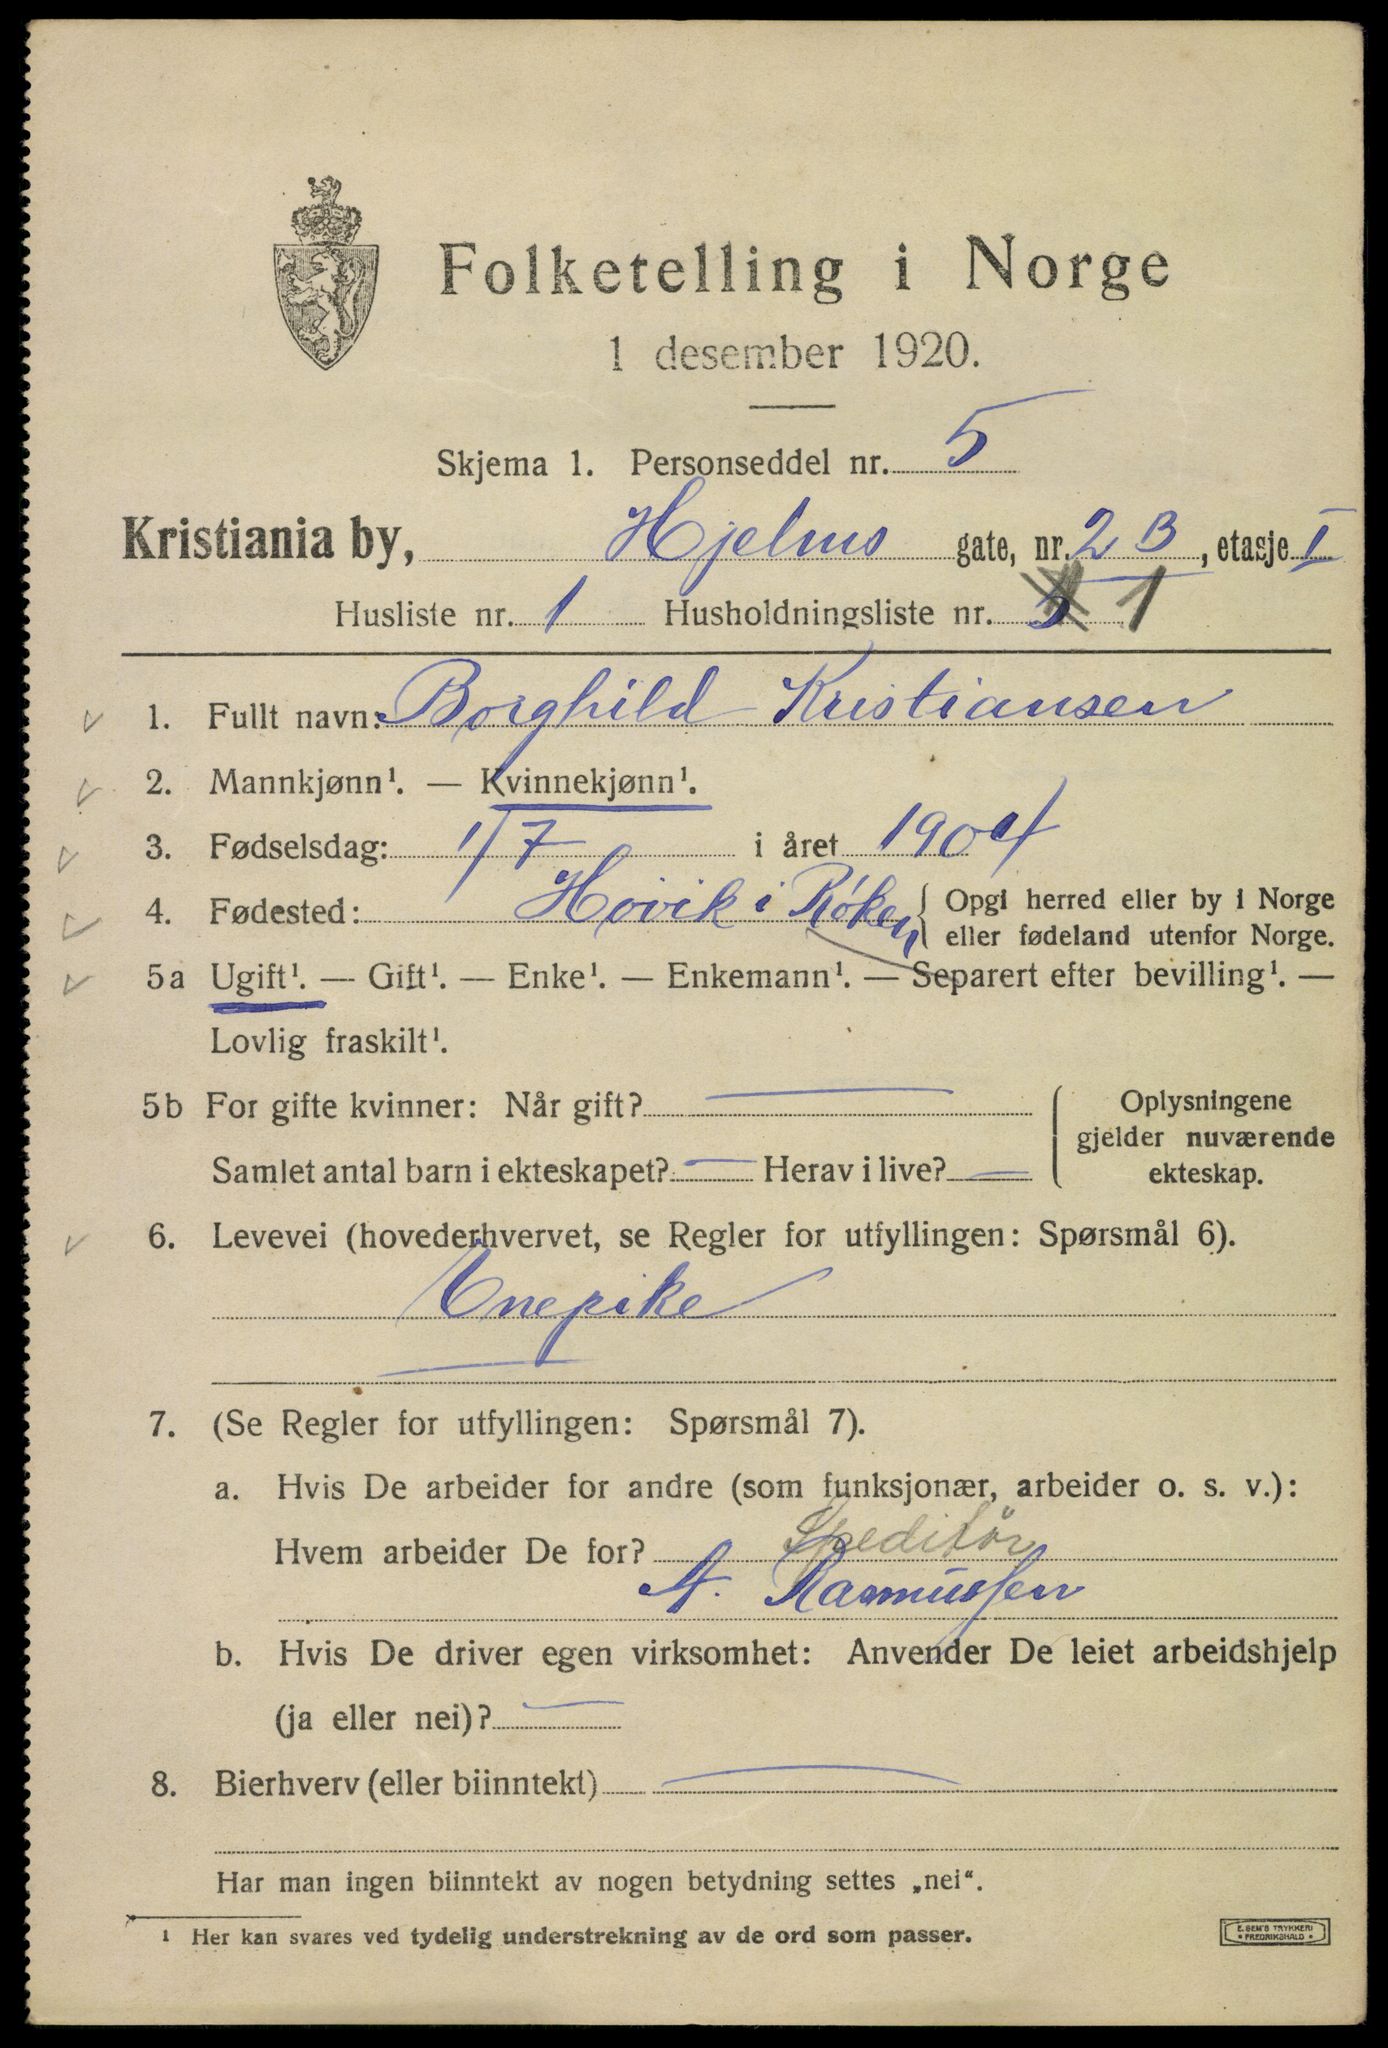 Folketelling i Norge
1 desember 1920.
Skjema 1. Personseddel nr. 5
Kristiania by, Hjelms gate, nr. 2 B, etasje I
Husliste nr. 1 Husholdningsliste nr. 1
1. Fullt navn: Borghild Kristiansen
2. Mannkjønn¹. — Kvinnekjønn¹.
3. Fødselsdag: 1/7 i året 1904
4. Fødested: Høvik i Røken { Opgi herred eller by i Norge
eller fødeland utenfor Norge.
5a Ugift¹. — Gift¹. — Enke¹. — Enkemann¹. — Separert efter bevilling¹. —
Lovlig fraskilt¹.
5b For gifte kvinner: Når gift? —
Samlet antal barn i ekteskapet? — Herav i live? —
{ Oplysningene
gjelder nuværende
ekteskap.
6. Levevei (hovederhvervet, se Regler for utfyllingen: Spørsmål 6).
Enepike
7. (Se Regler for utfyllingen: Spørsmål 7).
a. Hvis De arbeider for andre (som funksjonær, arbeider o. s. v.):
Hvem arbeider De for? Speditør
A. Rasmussen
b. Hvis De driver egen virksomhet: Anvender De leiet arbeidshjelp
(ja eller nei)? —
8. Bierhverv (eller biinntekt) —
Har man ingen biinntekt av nogen betydning settes „nei“.
¹ Her kan svares ved tydelig understrekning av de ord som passer.
E. SEM'S TRYKKERI
• FREDRIKSHALD •